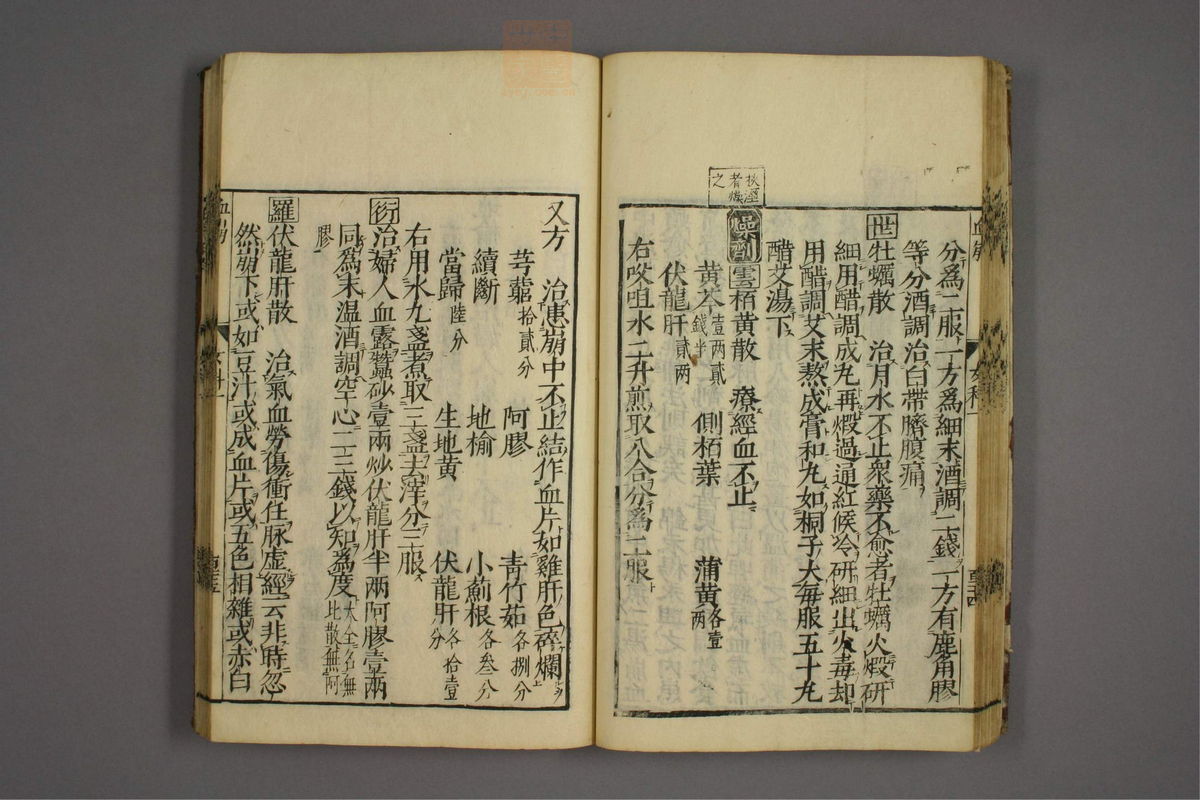 分為二服一方為細末酒調二錢一方有鹿角膠
等分酒調治白帶臍腹痛
世牡蠣散 治月水不止衆藥不愈者牡蠣火煅研
細用醋調成丸再煅過通紅候冷研細出火毒却
用醋調艾末熬成膏和丸如桐子大每服五十丸
醋艾湯下
燥劑 雲栢黄散 療經血不止
黄芩壹兩貳錢半 側栢葉 蒲黄各壹兩
伏龍肝貳兩
右㕮咀水二升煎取八合分為二服
又方 治患崩中不止結作血片如雞肝色碎爛
芎藭拾貳分 阿膠 青竹茹各捌分
續斷 地榆 小薊根各叁分
當歸陸分 生地黄 伏龍肝各拾壹分
右用水九盞煮取三盞去滓分三服
衍治婦人血露蠶砂壹兩炒伏龍肝半兩阿膠壹兩
同為末温酒調空心二三錢以知為度大全名無比散無阿膠
羅伏龍肝散 治氣血勞傷衝任脉虛經云非時忽
然崩下或如豆汁或成血片或五色相雜或赤白